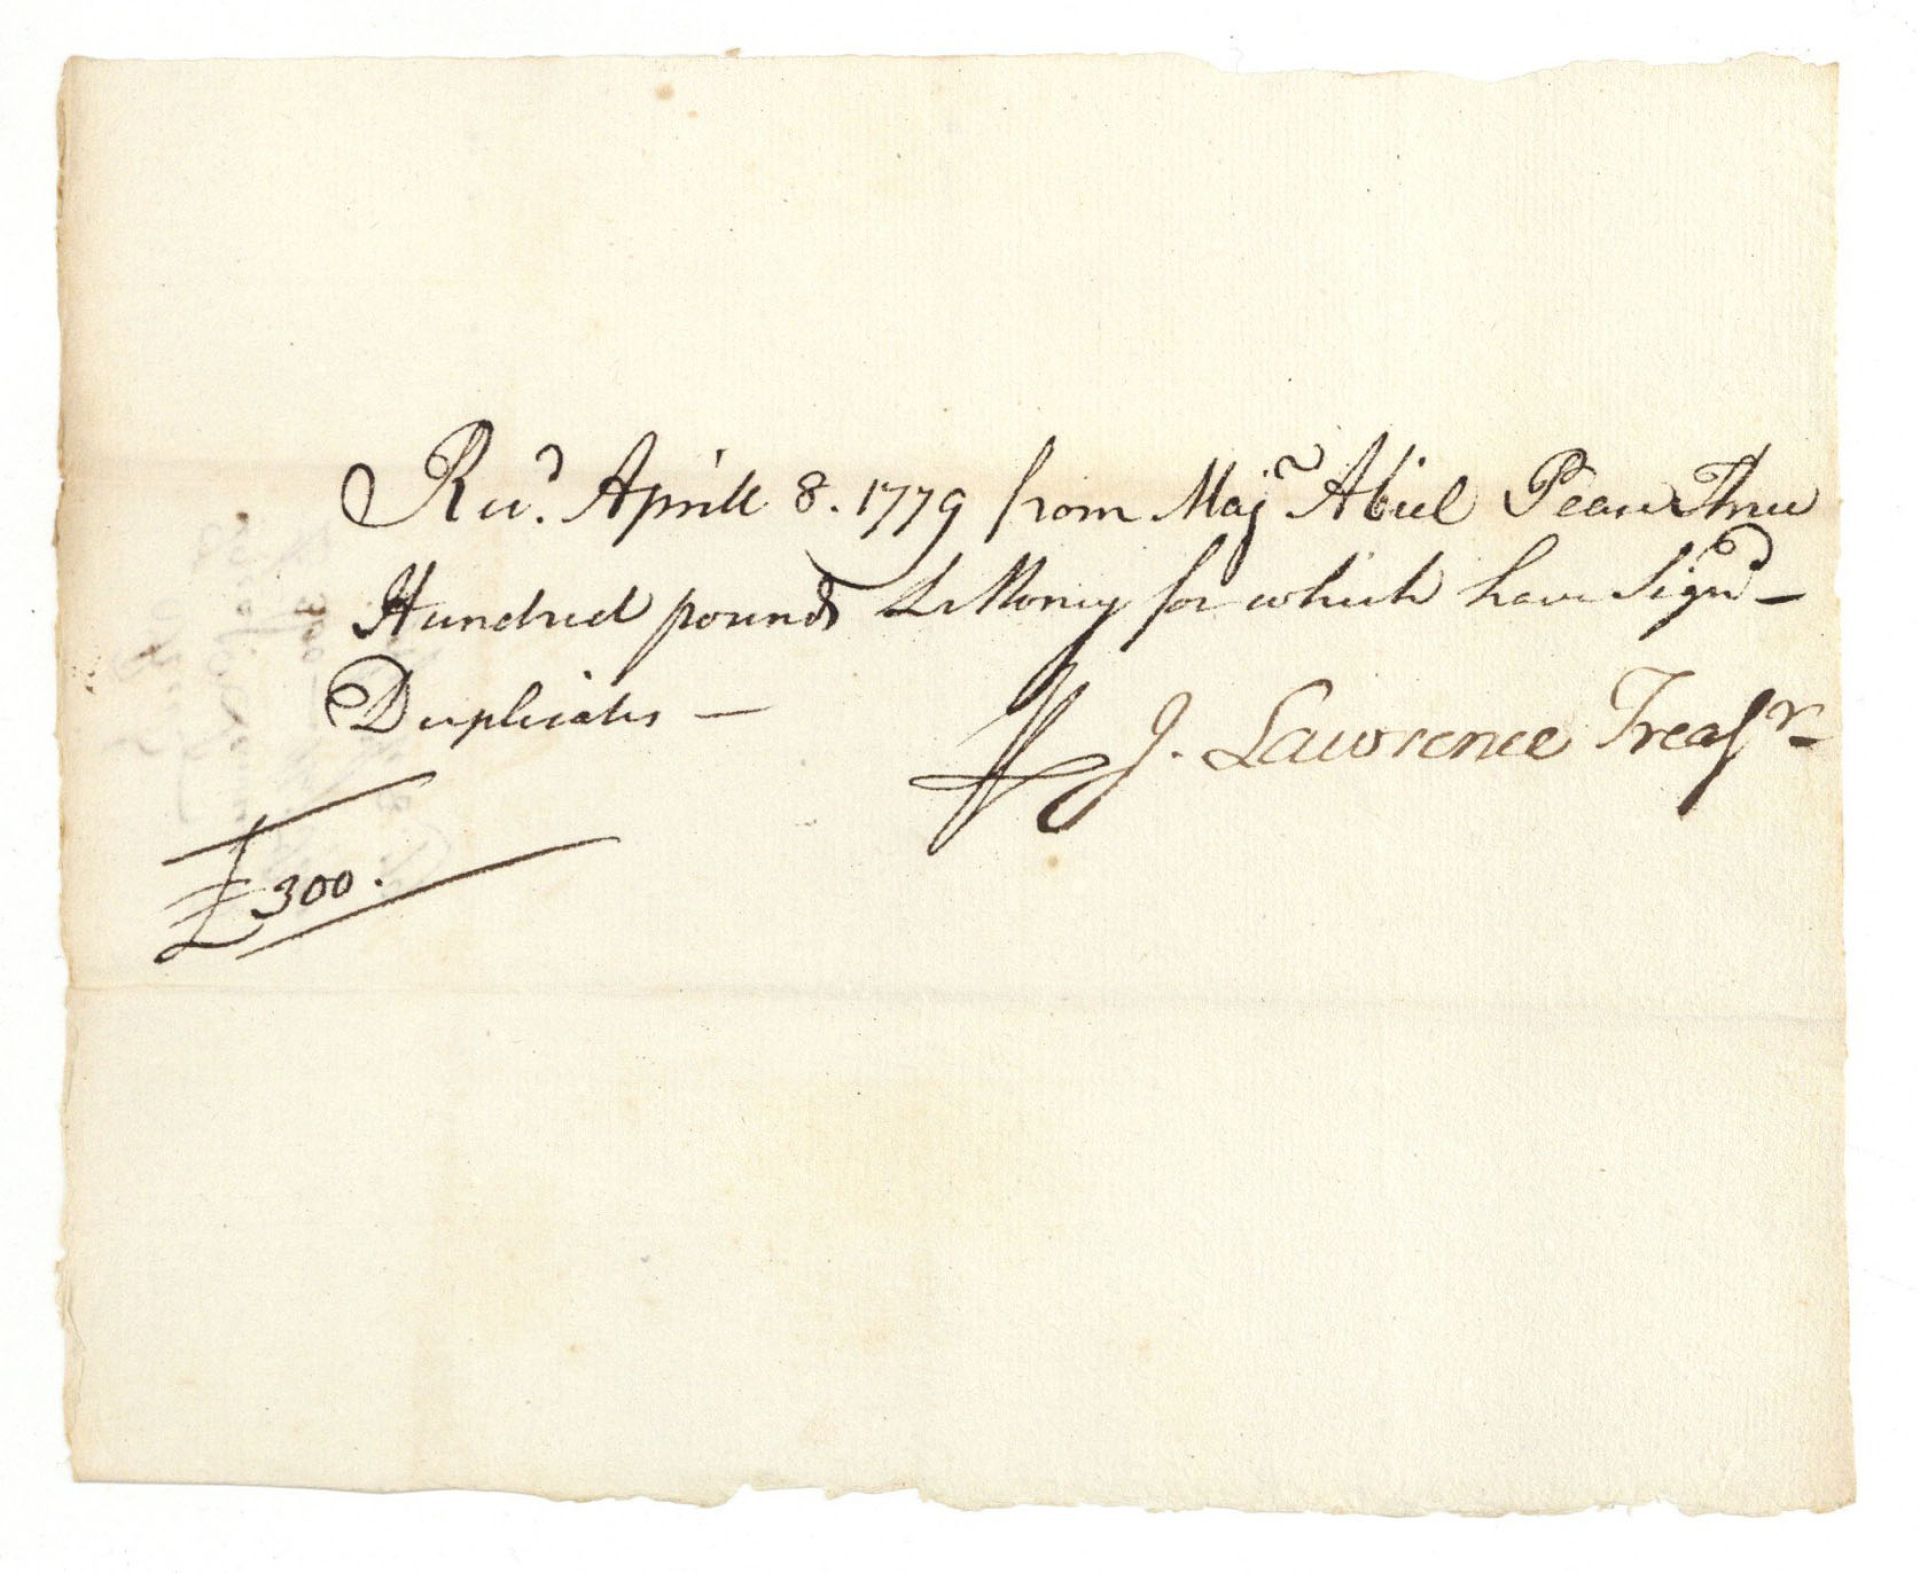 Recd. Aprill 8. 1779 from Majr Abiel Pease Three
Hundred pounds L Money for which have Signd –
Duplicates –
J. Lawrence Treasr
£300.